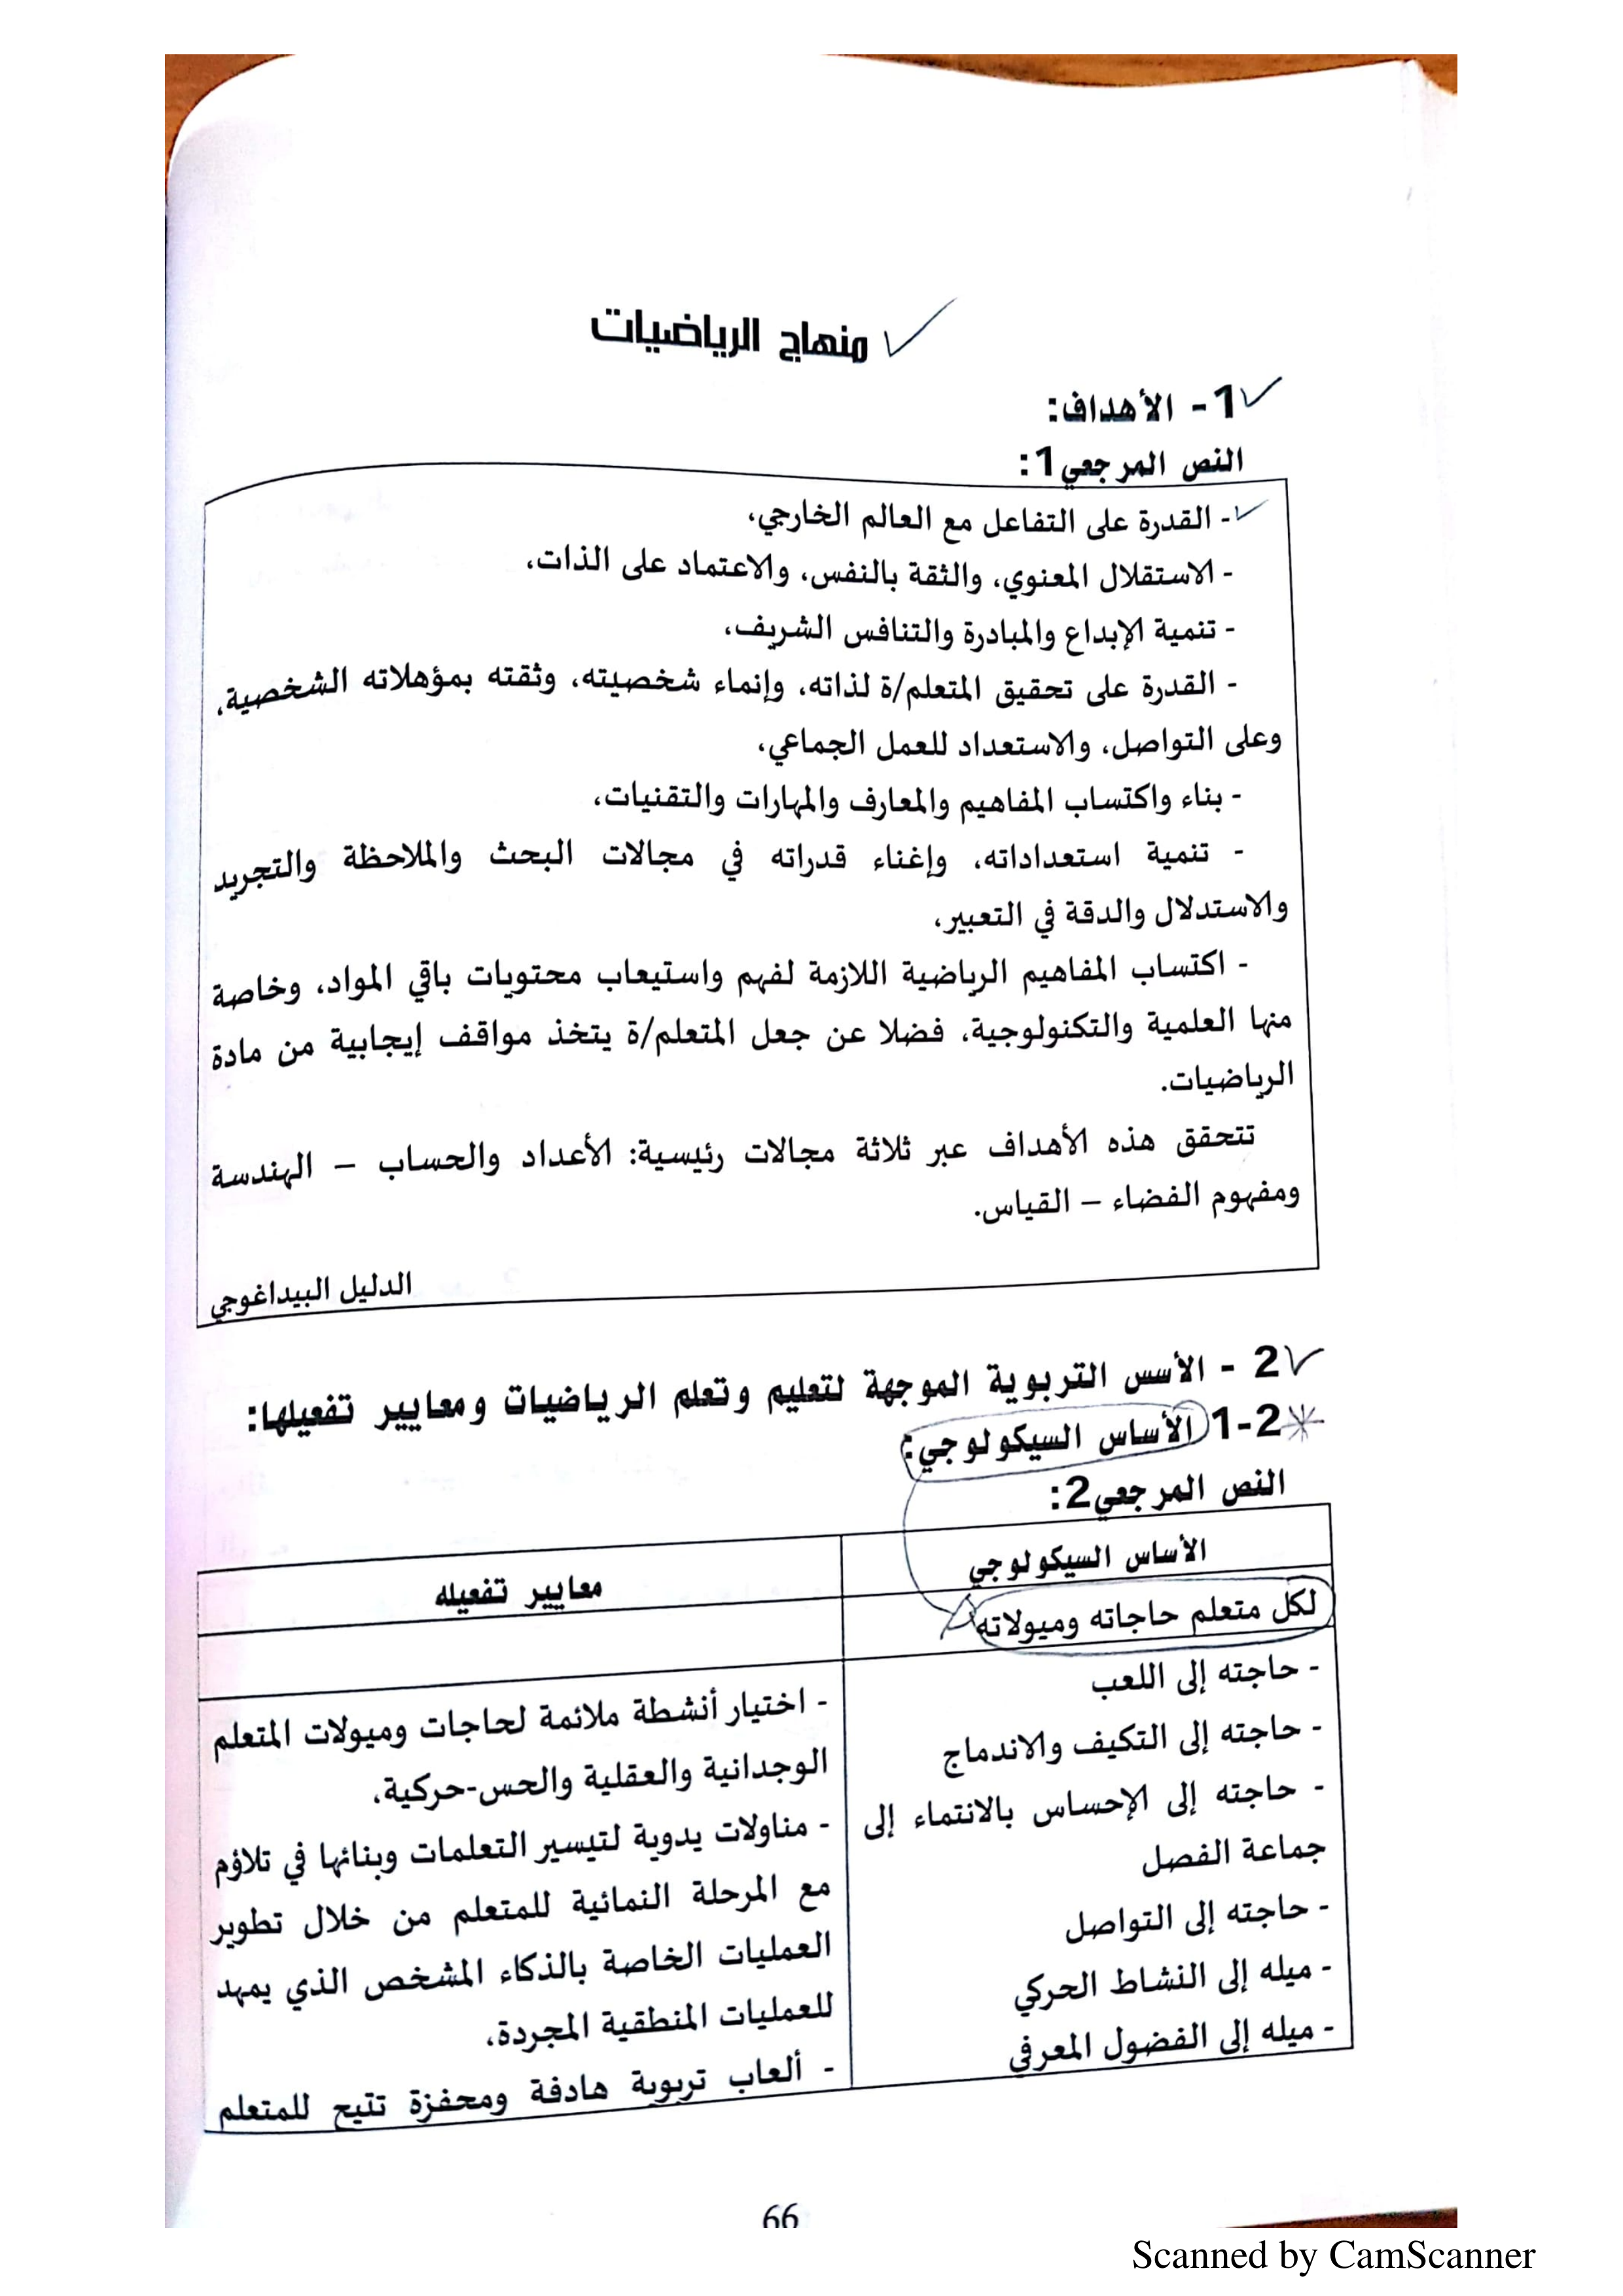 منهاج الرياضيات
1- الأهداف:
النص المرجعي1:
- القدرة على التفاعل مع العالم الخارجي،
- الاستقلال المعنوي، والثقة بالنفس، والاعتماد على الذات،
- تنمية الإبداع والمبادرة والتنافس الشريف،
- القدرة على تحقيق المتعلم/ة لذاته، وإنماء شخصيته، وثقته بمؤهلاته الشخصية،
وعلى التواصل، والاستعداد للعمل الجماعي،
- بناء واكتساب المفاهيم والمعارف والمهارات والتقنيات،
- تنمية استعداداته، وإغناء قدراته في مجالات البحث والملاحظة والتجريد
والاستدلال والدقة في التعبير،
- اكتساب المفاهيم الرياضية اللازمة لفهم واستيعاب محتويات باقي المواد، وخاصة
منها العلمية والتكنولوجية، فضلا عن جعل المتعلم/ة يتخذ مواقف إيجابية من مادة
الرياضيات.
تتحقق هذه الأهداف عبر ثلاثة مجالات رئيسية: الأعداد والحساب – الهندسة
ومفهوم الفضاء – القياس.
الدليل البيداغوجي
2 - الأسس التربوية الموجهة لتعليم وتعلم الرياضيات ومعايير تفعيلها:
1-2 الأساس السيكولوجي:
النص المرجعي2:
الأساس السيكولوجي
لكل متعلم حاجاته وميولاته
- حاجته إلى اللعب
- حاجته إلى التكيف والاندماج
- حاجته إلى الإحساس بالانتماء إلى
جماعة الفصل
- حاجته إلى التواصل
- ميله إلى النشاط الحركي
- ميله إلى الفضول المعرفي
معايير تفعيله
- اختيار أنشطة ملائمة لحاجات وميولات المتعلم
الوجدانية والعقلية والحس-حركية،
- مناولات يدوية لتيسير التعلمات وبنائها في تلاؤم
مع المرحلة النمائية للمتعلم من خلال تطوير
العمليات الخاصة بالذكاء المشخص الذي يمهد
للعمليات المنطقية المجردة،
- ألعاب تربوية هادفة ومحفزة تتيح للمتعلم
66
Scanned by CamScanner